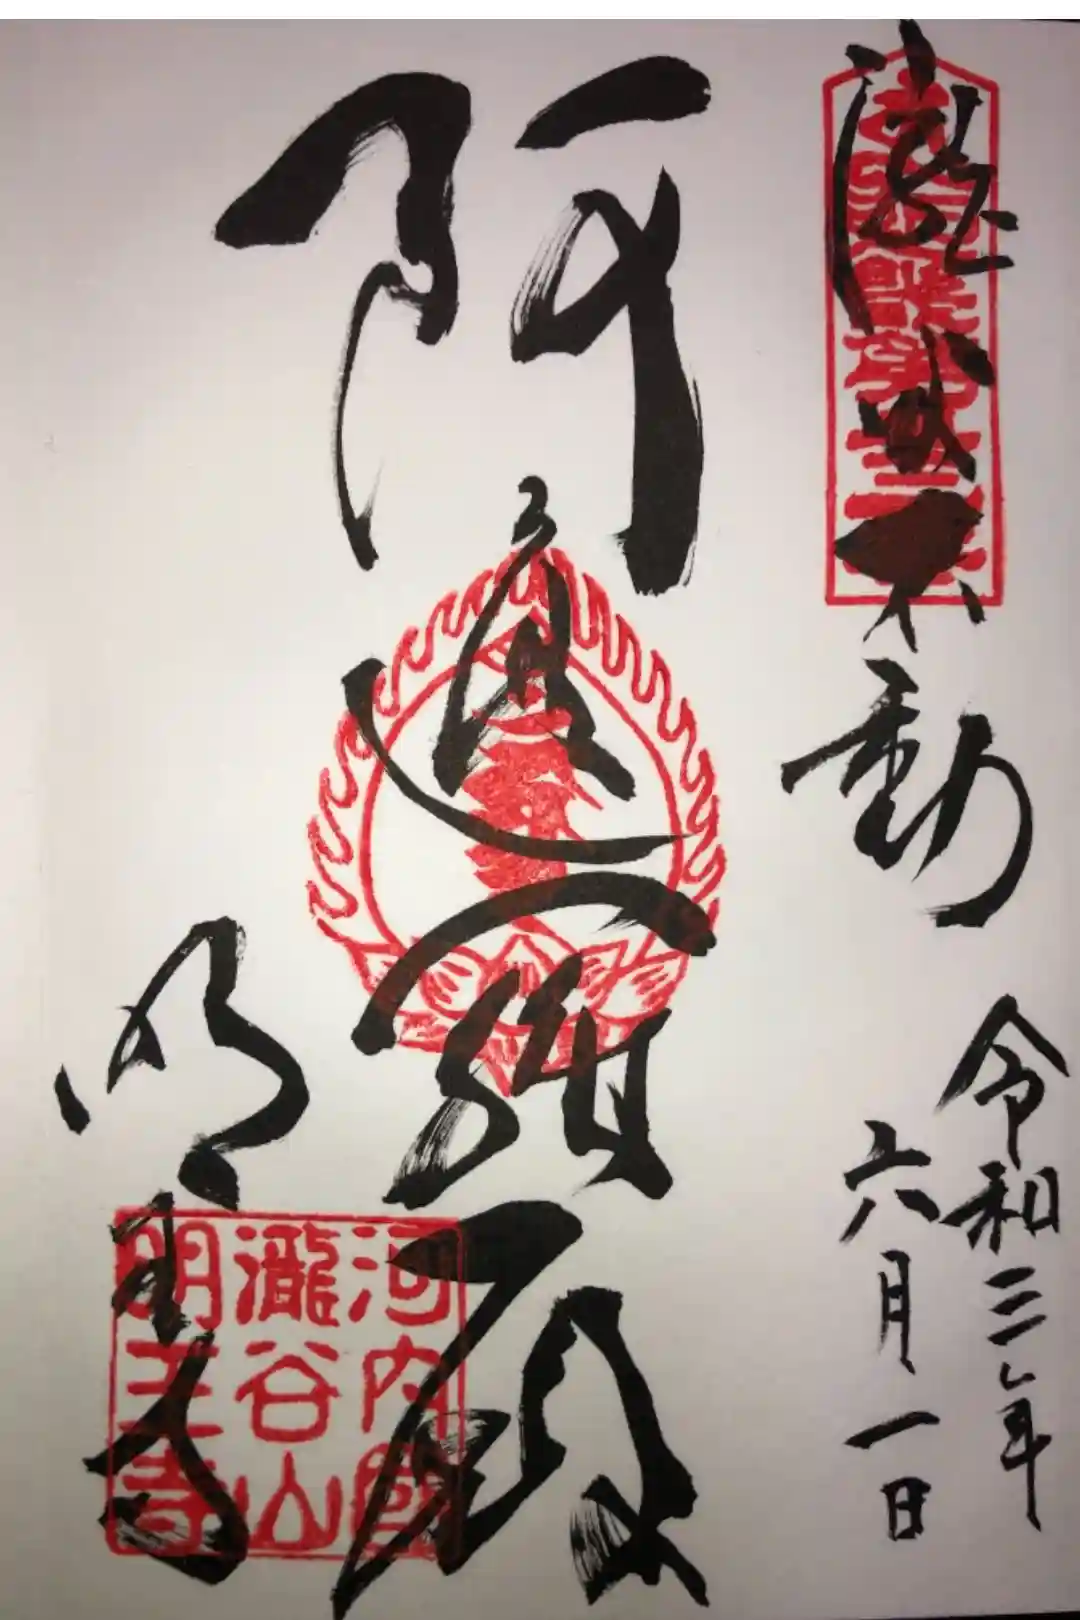 瀧谷不動
令和三年
六月一日
阿遮羅殿
明王寺
河内國
瀧谷山
明王寺